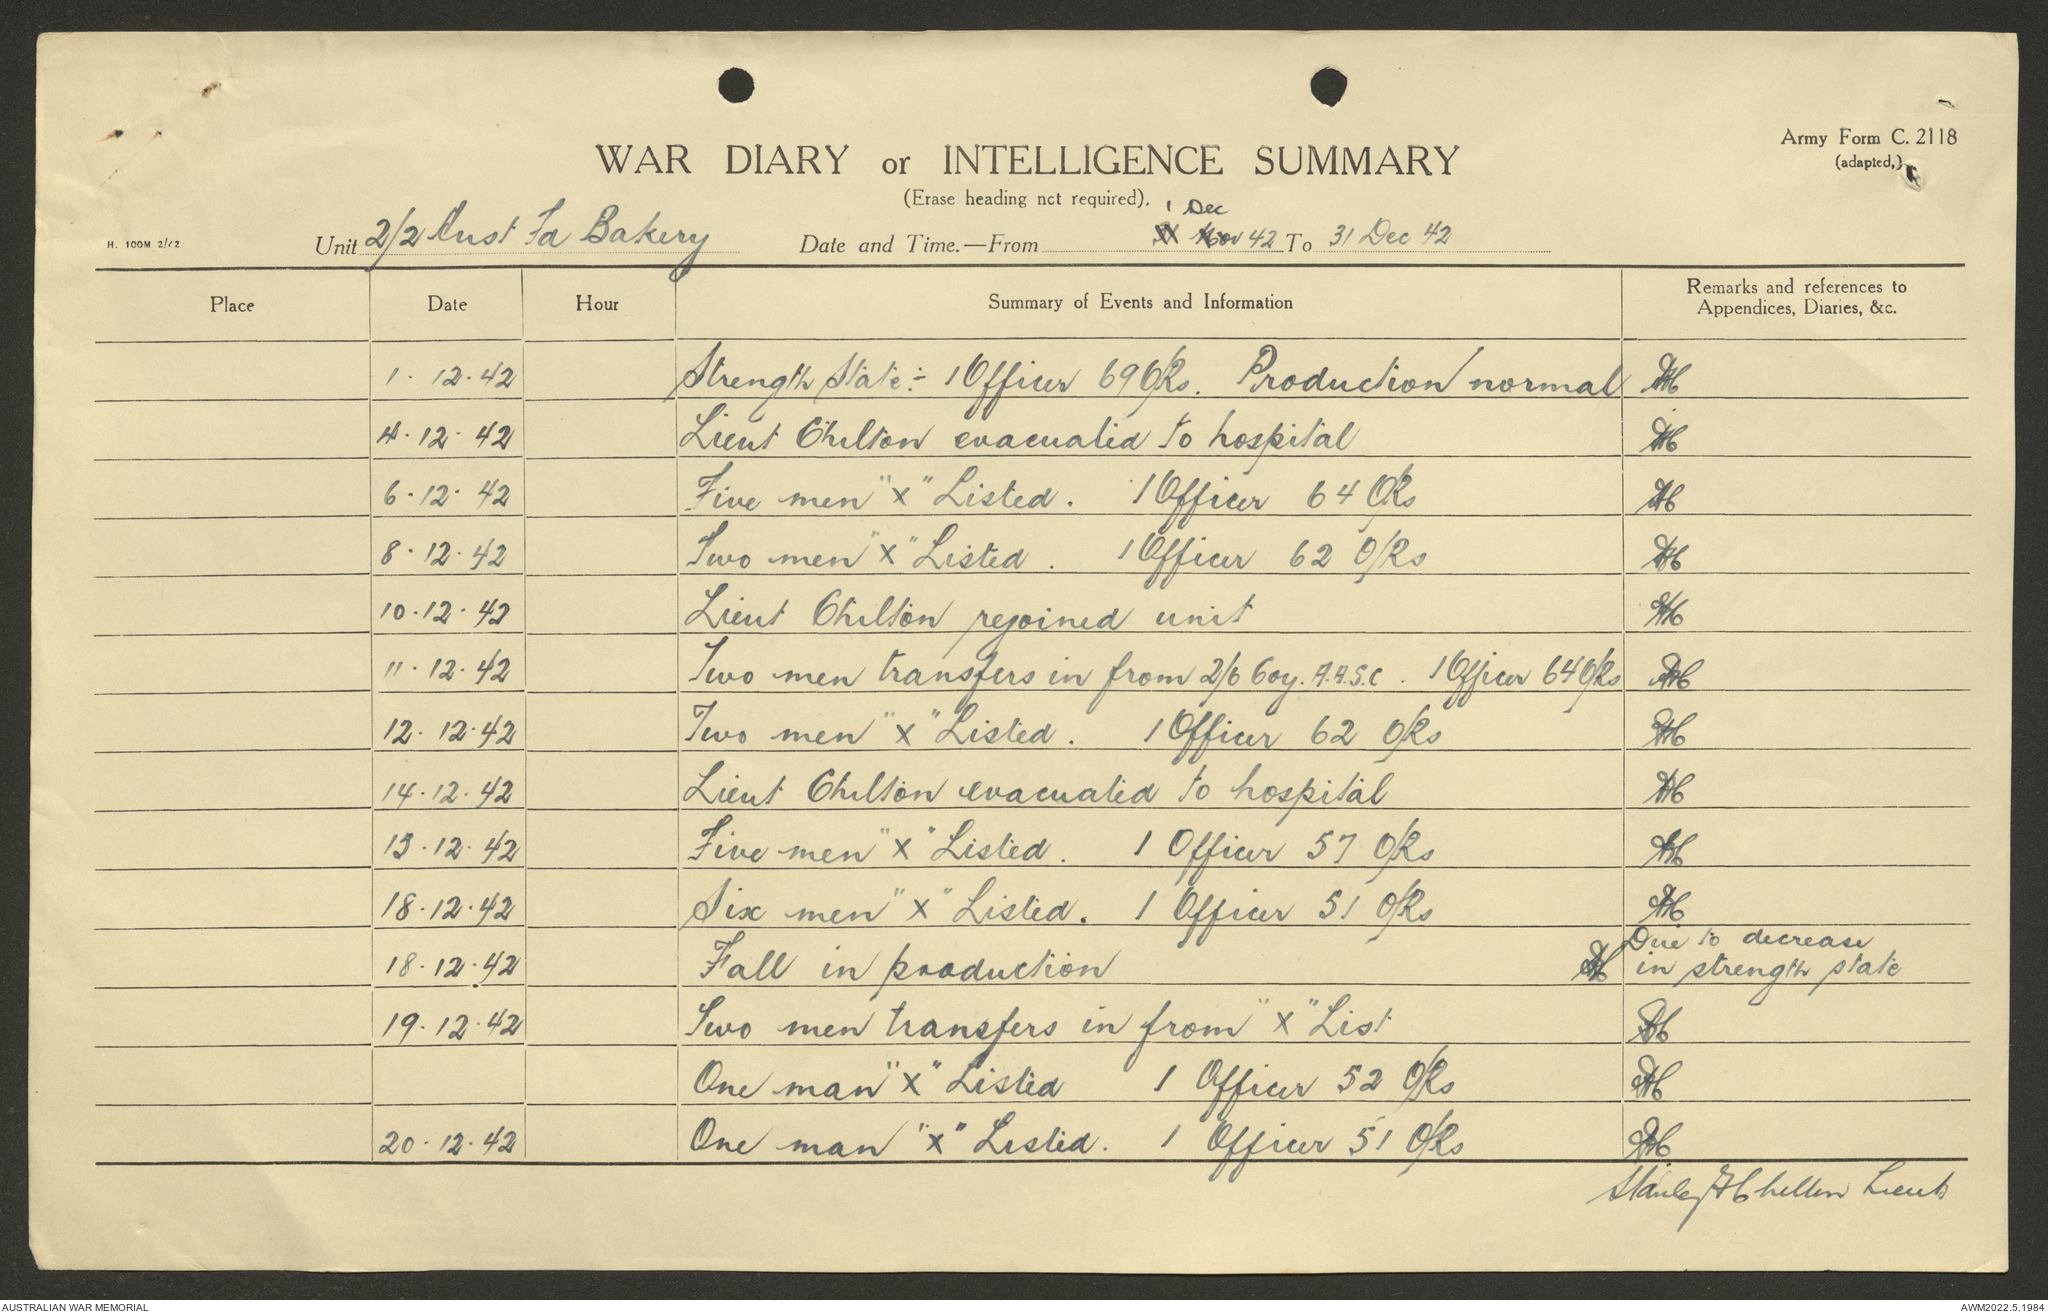 Army Form C. 2118
(adapted,)
WAR DIARY or INTELLIGENCE SUMMARY
(Erase heading not required).
H. 100M 2/42
Unit 2/2 Aust Fd Bakery
Date and Time.—From 1 Dec Nov 42 To 31 Dec 42
Place Date Hour Summary of Events and Information Remarks and references to
Appendices, Diaries, &c.
1. 12.42 Strength State:- 1 Officer 69 O/Rs. Production normal
4.12.42 Lieut Chilton evacuated to hospital
6.12.42 Five men "X" Listed. 1 Officer 64 O/Rs
8.12.42 Two men "X" Listed. 1 Officer 62 O/Rs
10.12.42 Lieut Chilton rejoined unit
11.12.42 Two men transfers in from Coy. A.A.S.C. 1 Officer 64 O/Rs
12.12.42 Two men "X" Listed. 1 Officer 62 O/Rs
14.12.42 Lieut Chilton evacuated to hospital
12.42 Five men "X" Listed. 1 Officer 57 O/Rs
18.12.42 Six men "X" Listed. 1 Officer 51 O/Rs
18.12.42 Fall in production Due to decrease
in strength state
19.12.42 Two men transfers in from "X" List
One man "X" Listed 1 Officer 52 O/Rs
20.12.42 One man "X" Listed. 1 Officer 51 O/Rs
Stanley H Chilton Lieut
AUSTRALIAN WAR MEMORIAL
AWM2022.5.1984